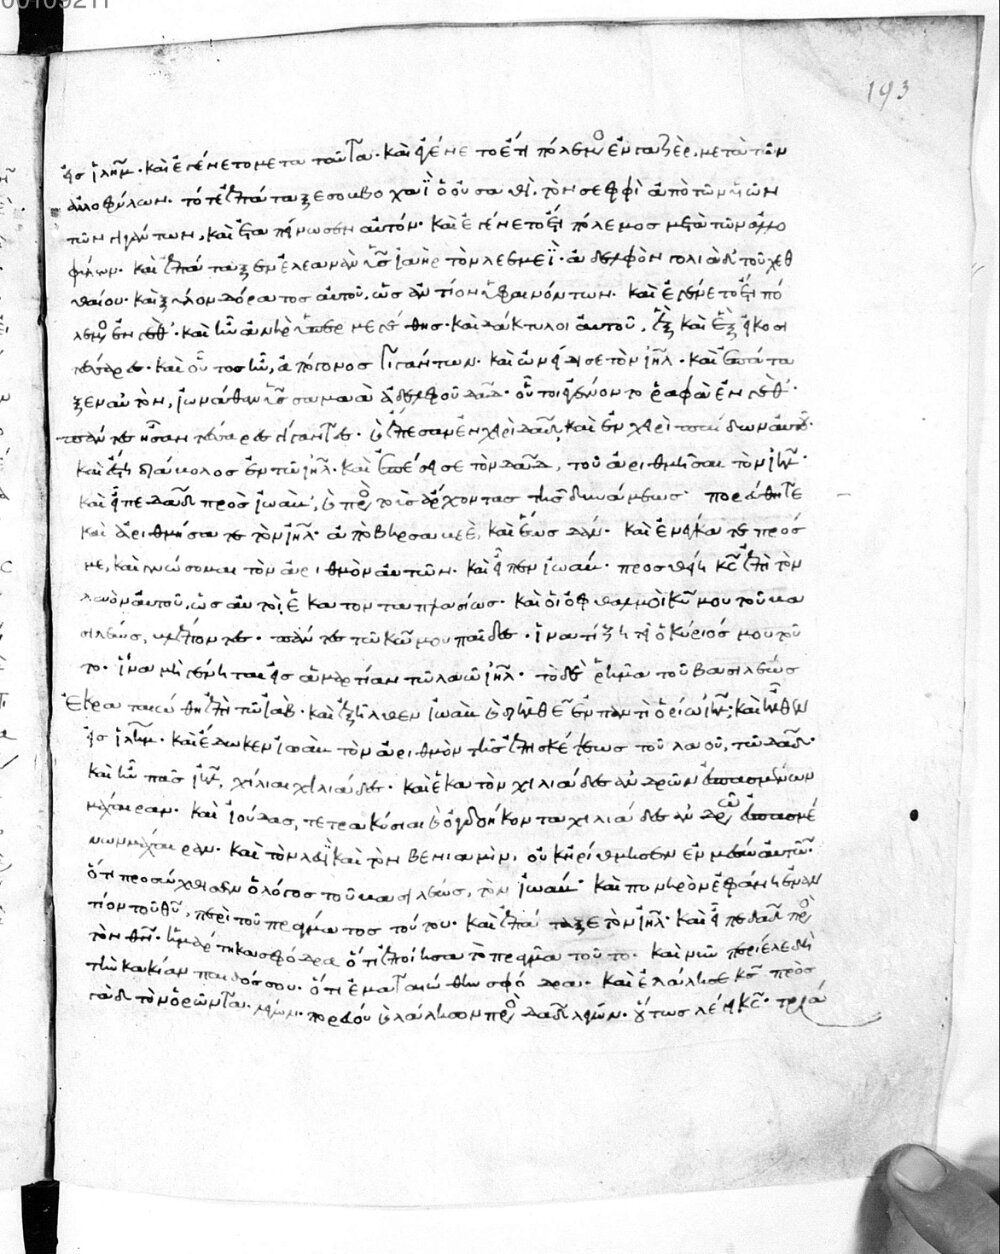 193
εἰς ἰλῆμ. καὶ ἐγένετο μετα ταῦτα. καὶ ἐγένετο ἔτι πόλεμος ἐν γαζὲρ, μετὰ τῶν
ἀλλοφύλων. τότε ἐπάταξε σοβοχαῒ ὁ οὐσαθὶ. τὸν σεφφὶ ἀπὸ τῶν υἱῶν
τῶν γιγάντων, καὶ ἐταπείνωσεν αὐτόν. καὶ ἐγένετο ἔτι πόλεμος μετὰ τῶν ἀλλο
φύλων. καὶ ἐπάταξεν ἐλεανὰν υἱὸς ἰαὴρ τὸν λεεμεῒ. ἀδελφὸν γολιὰδ τοῦ γεθ
θαίου. καὶ ξύλον δόρατος αὐτοῦ, ὡς ἀντίον ὑφαινόντων. καὶ ἐγένετο ἔτι πό
λεμος ἐν γὲθ. καὶ ἦν ἀνὴρ ὑπερμεγέθης. καὶ δάκτυλοι αὐτοῦ, ἓξ καὶ ἓξ εἰκοσι
τέσσαρες. καὶ οὗτος ἦν, ἀπόγονος γιγάντων. καὶ ὠνείδισε τὸν ἰῆλ. καὶ ἐπάτα
ξεν αὐτὸν, ἰωνάθαν υἱὸς σαμαὰ ἀδελφοῦ δαδ. οὗτοι ἐγένοντο ῥαφὰ ἐν γέθ.
πάντες ἦσαν τέσσαρες γίγαντες. καὶ ἔπεσαν ἐν χειρὶ δαδ, καὶ ἐν χειρὶ παίδων αὐτοῦ.
καὶ ἔστη διάβολος ἐν τῶ ἰῆλ. καὶ ἐπέσεισε τὸν δαδ, τοῦ ἀριθμῆσαι τὸν ἰῆλ.
καὶ εἶπε δαδ πρὸς ἰωὰβ, καὶ πρὸς τοὺς ἄρχοντας τῆς δυνάμεως. πορεύθητε
καὶ ἀριθμήσατε τὸν ἰῆλ. ἀπὸ βηρσαβεὲ, καὶ ἕως δάν. καὶ ἐνέγκατε πρός
με, καὶ γνώσομαι τὸν ἀριθμὸν αὐτῶν. καὶ εἶπεν ἰωάβ. προσθείη κς ἐπὶ τὸν
λαὸν αὐτοῦ, ὡς αὐτοὶ, ἑκατονταπλασίως. καὶ οἱ ὀφθαλμοὶ κυ μου τοῦ βα
σιλέως, βλέποντες. πάντες τῶ κω μου παῖδες. ἵνα τί ζητεῖ ὁ κύριός μου τοῦ
το. ἵνα μὴ γένηται εἰς ἁμαρτίαν τῶ λαῶ ἰῆλ. τὸ δὲ ῥῆμα τοῦ βασιλέως
ἐκραταιώθη ἐπὶ τῶ ἰωὰβ. καὶ ἐξῆλθεν ἰωὰβ καὶ διῆλθεν ἐν παντὶ ὁρίω ἰῆλ. καὶ ἦλθεν
εἰς ἰλῆμ. καὶ ἔδωκεν ἰωὰβ τὸν ἀριθμὸν τῆς ἐπισκέψεως τοῦ λαοῦ, τῶ δαδ.
καὶ ἦν πᾶς ἰῆλ, χίλιαι χιλιάδες. καὶ ἑκατὸν χιλιάδες ἀνδρῶν ἐσπασμένων
μάχαιραν. καὶ ἰούδας, τετρακόσιαι καὶ ὀγδοήκοντα χιλιάδες ἀνδρῶν ἐσπασμέ
νων μάχαιραν. καὶ τὸν λευῒ καὶ τὸν βενιαμὶν, οὐκ ἠρίθμησεν ἐν μέσω αὐτῶν.
ὅτι προσώχθισεν ὁ λόγος τοῦ βασιλέως, τὸν ἰωάβ. καὶ πονηρὸν ἐφάνη ἐναν
τίον τοῦ θυ, περὶ τοῦ πράγματος τούτου. καὶ ἐπάταξε τὸν ἰῆλ. καὶ εἶπε δαδ πρὸς
τὸν θν. ἡμάρτηκα σφόδρα ὅτι ἐποίησα τὸ πρᾶγμα τοῦτο. καὶ νῦν περίελε δὴ
τὴν κακίαν παιδός σου. ὅτι ἐματαιώθην σφόδρα. καὶ ἐλάλησε κς πρὸς
γὰδ τὸν ὁρῶντα. λέγων. πορεύου καὶ λάλησον πρὸς δαδ λέγων. οὕτως λέγει κς. τρία